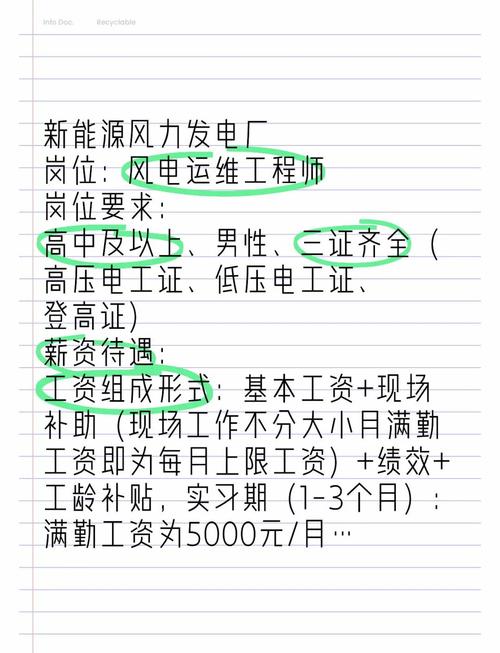 Info Doc. Recyclable
新能源风力发电厂
岗位：风电运维工程师
岗位要求：
高中及以上、男性、三证齐全（
高压电工证、低压电工证、
登高证）
薪资待遇：
工资组成形式：基本工资+现场
补助（现场工作不分大小月满勤
工资即为每月上限工资）+绩效+
工龄补贴，实习期（1-3个月）：
满勤工资为5000元/月…